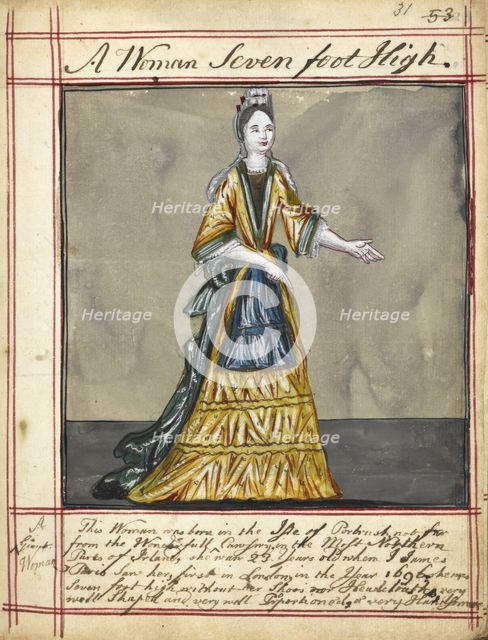 31 53
A Woman Seven foot High.
Heritage Heritage
Heritage Heritage
Heritage Heritage
A
Giant
Woman
This Woman was born in the Isle of Portrush not far
from the Wonderfull Causway, in the Most Northern
Parts of Irland, she was 23 years old when I James
Paris Saw her first in London, in the Year 1696 she was
Seven foot high without her Shoes nor very
well Shaped and very well Proportioned, a very Handsome